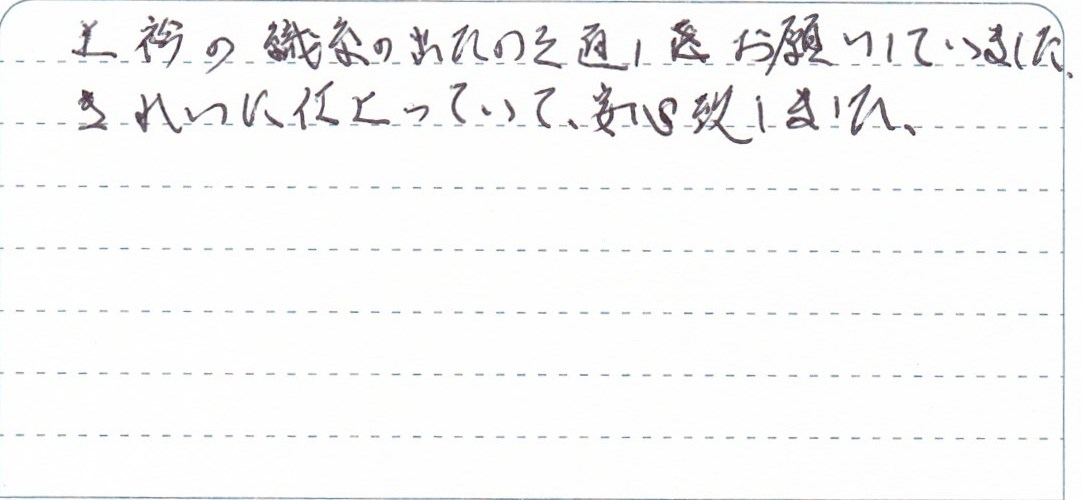 上衿の織糸の出たのを し お願いしていました。
きれいに仕上っていて、安心致しました。